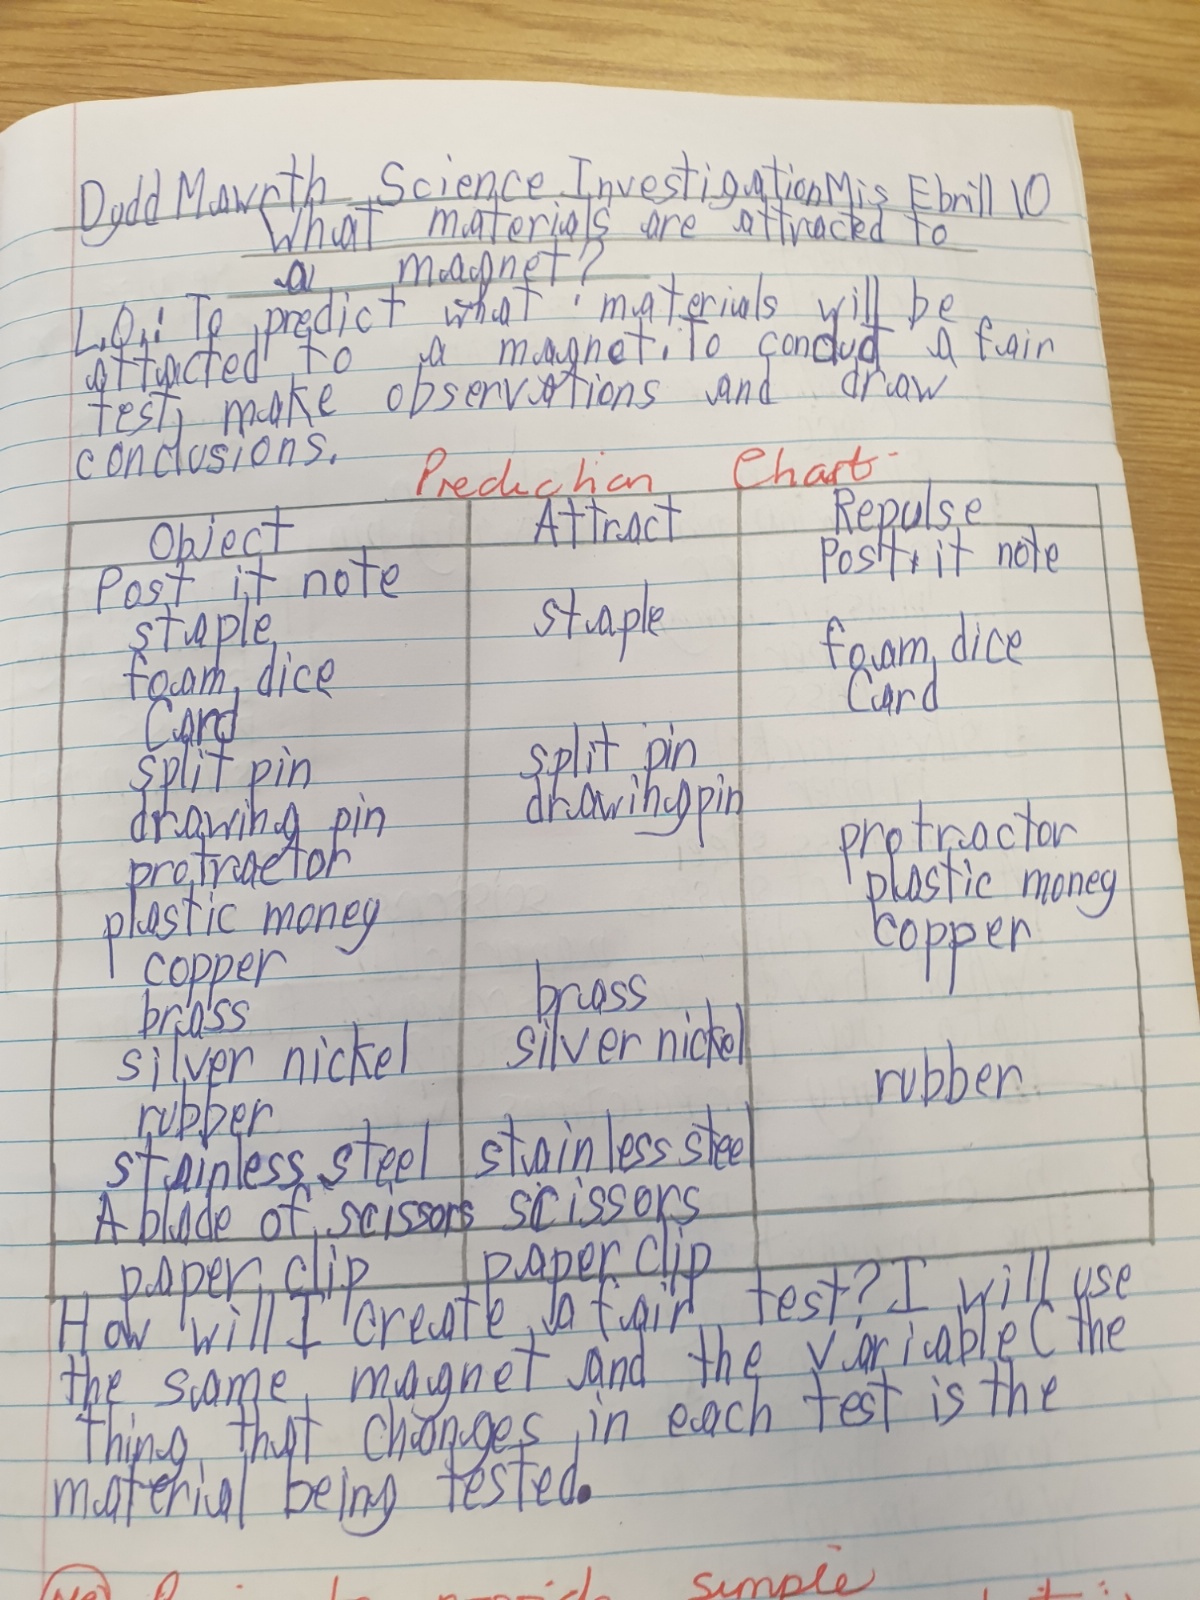 Dydd Mawrth Science Investigation Mis Ebrill 10
What materials are attracted to
a magnet?
L.O.: To predict what materials will be
attracted to a magnet. To conduct a fair
test, make observations and draw
conclusions.
Prediction Chart
Object Attract Repulse
Post it note Post it note
staple staple
foam dice foam dice
Card Card
split pin split pin
drawing pin drawing pin
protractor protractor
plastic money plastic money
copper copper
brass brass
silver nickel silver nickel
rubber rubber
stainless steel stainless steel
A blade of scissors scissors
paper clip paper clip
How will I create a fair test? I will use
the same magnet and the variable (the
thing that changes in each test is the
material being tested.
to provide simple